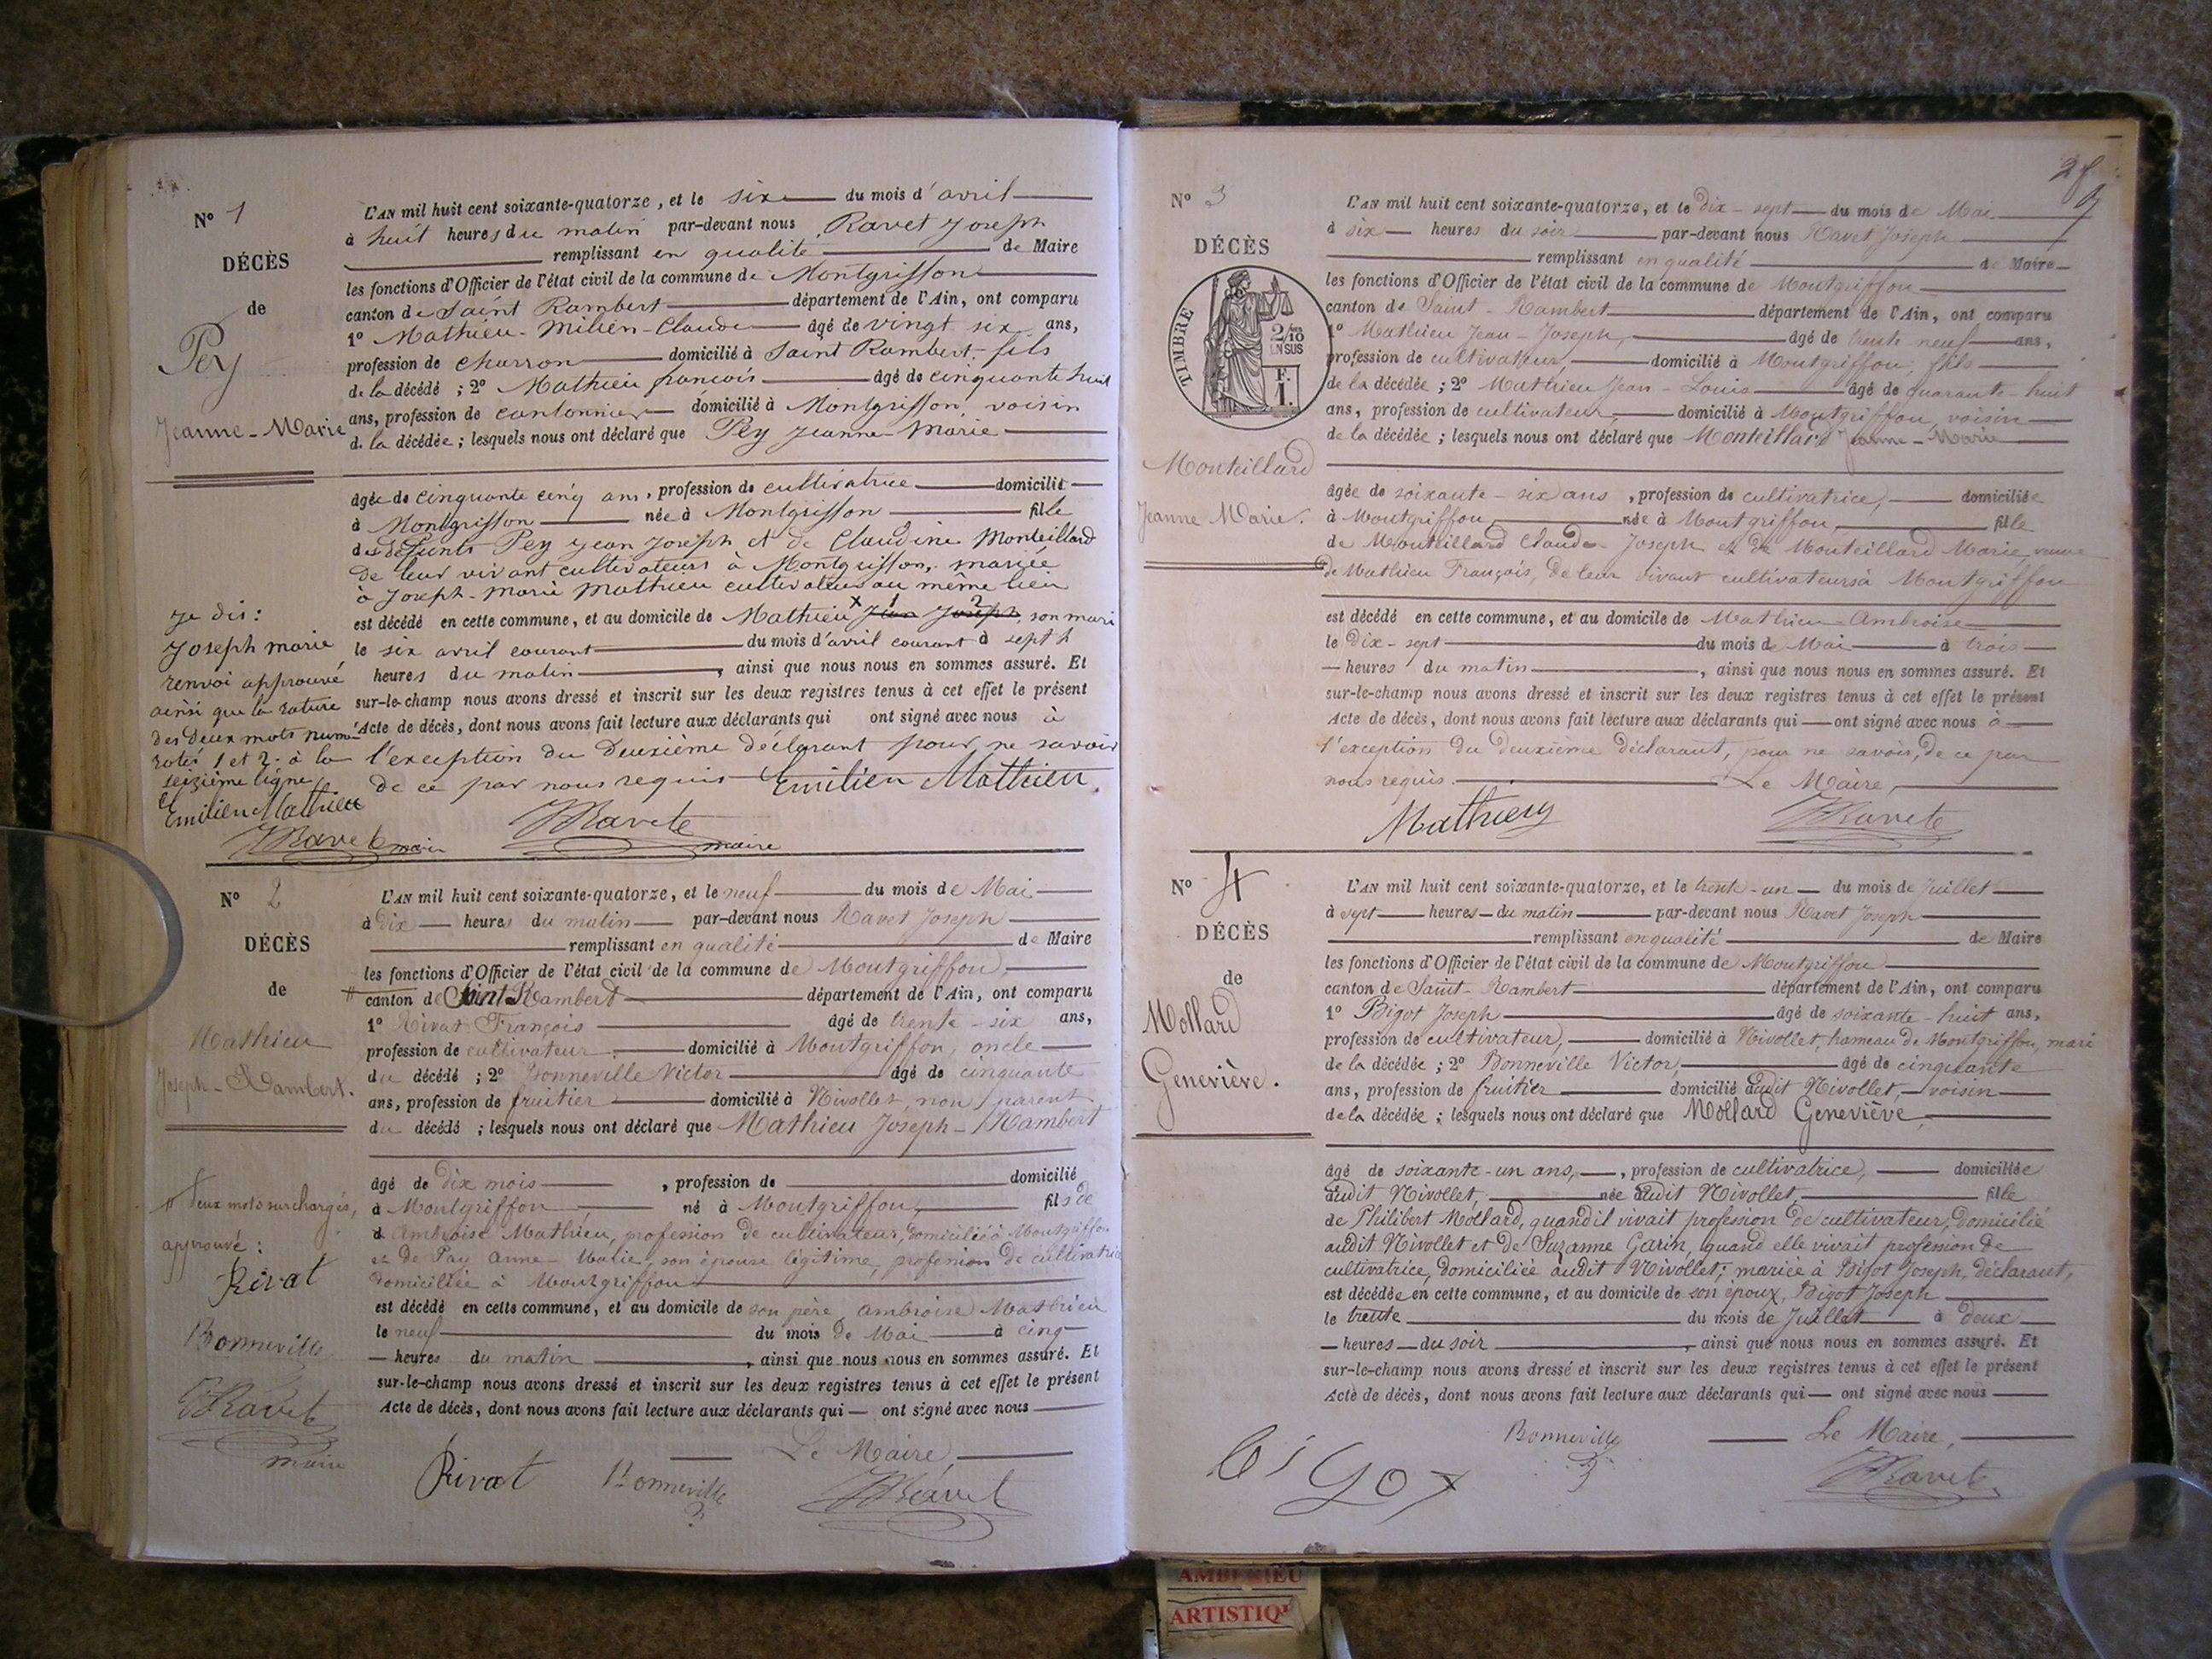 N° 1
DÉCÈS
de
Pey
Jeanne-Marie
L'AN mil huit cent soixante-quatorze, et le six du mois d'avril
à huit heures du matin par-devant nous Ravet Joseph
remplissant en qualité de Maire
les fonctions d'Officier de l'état civil de la commune de Montgriffon
canton de Saint Rambert département de l'Ain, ont comparu
1° Mathieu-Milien-Claude âgé de vingt six ans,
profession de charron domicilié à Saint Rambert, fils
de la décédé ; 2° Mathieu françois âgé de cinquante huit
ans, profession de cantonnier domicilié à Montgriffon, voisin
de la décédée ; lesquels nous ont déclaré que Pey Jeanne-Marie
âgée de cinquante cinq ans, profession de cultivatrice domicilié
à Montgriffon née à Montgriffon fille
des défunts Pey Jean Joseph et de Claudine Monteillard
de leur vivant cultivateurs à Montgriffon, mariée
à Joseph-Marie Mathieu cultivateur au même lieu
est décédé en cette commune, et au domicile de Mathieu x Jean 1 Joseph 2, son mari
le six avril courant du mois d'avril courant à sept h
heures du matin, ainsi que nous nous en sommes assuré. Et
sur-le-champ nous avons dressé et inscrit sur les deux registres tenus à cet effet le présent
Acte de décès, dont nous avons fait lecture aux déclarants qui ont signé avec nous à
l'exception du deuxième déclarant pour ne savoir
de ce par nous requis Emilien Mathieu
JRavet
maire
Je dis :
Joseph marie
renvoi approuvé
ainsi que la rature
des deux mots numé-
rotés 1 et 2 à la
seizième ligne
Emilien Mathieu
JRavet maire
N° 2
DÉCÈS
de
Mathieu
Joseph-Rambert.
L'AN mil huit cent soixante-quatorze, et le neuf du mois de Mai
à dix heures du matin par-devant nous Ravet Joseph
remplissant en qualité de Maire
les fonctions d'Officier de l'état civil de la commune de Montgriffon,
# canton de Saint-Rambert département de l'Ain, ont comparu
1° Rivat François âgé de trente-six ans,
profession de cultivateur domicilié à Montgriffon, oncle
du décédé ; 2° Bonneville Victor âgé de cinquante
ans, profession de fruitier domicilié à Nivollet, non parent
du décédé ; lesquels nous ont déclaré que Mathieu Joseph-Rambert
âgé de dix mois, profession de domicilié
à Montgriffon né à Montgriffon, fils de
d'Ambroise Mathieu, profession de cultivateur, domicilié à Montgriffon
et de Pay Anne-Marie, son épouse légitime, profession de cultivatrice
domiciliée à Montgriffon
est décédé en cette commune, et au domicile de son père, Ambroise Mathieu
le neuf du mois de Mai à cinq
heures du matin, ainsi que nous nous en sommes assuré. Et
sur-le-champ nous avons dressé et inscrit sur les deux registres tenus à cet effet le présent
Acte de décès, dont nous avons fait lecture aux déclarants qui ont signé avec nous
Le Maire,
Rivat Bonneville JRavet
# deux mots surchargés,
approuvé :
Rivat
Bonneville
JRavet
maire
28
N° 3
DÉCÈS
TIMBRE
2/10 EN SUS
F. 1.
Monteillard
Jeanne Marie.
L'AN mil huit cent soixante-quatorze, et le dix-sept du mois de Mai
à six heures du soir par-devant nous Ravet Joseph
remplissant en qualité de Maire
les fonctions d'Officier de l'état civil de la commune de Montgriffon
canton de Saint-Rambert département de l'Ain, ont comparu
1° Mathieu Jean-Joseph, âgé de trente neuf ans,
profession de cultivateur, domicilié à Montgriffon, fils
de la décédée ; 2° Mathieu Jean-Louis âgé de quarante-huit
ans, profession de cultivateur, domicilié à Montgriffon, voisin
de la décédée ; lesquels nous ont déclaré que Monteillard Jeanne-Marie
âgée de soixante-six ans, profession de cultivatrice, domiciliée
à Montgriffon, née à Montgriffon, fille
de Monteillard Claude Joseph et de Monteillard Marie, veuve
de Mathieu François, de leur vivant cultivateurs à Montgriffon
est décédé en cette commune, et au domicile de Mathieu Ambroise
le dix-sept du mois de Mai à trois
heures du matin, ainsi que nous nous en sommes assuré. Et
sur-le-champ nous avons dressé et inscrit sur les deux registres tenus à cet effet le présent
Acte de décès, dont nous avons fait lecture aux déclarants qui ont signé avec nous à
l'exception du deuxième déclarant, pour ne savoir, de ce par
nous requis. Le Maire,
Mathieu JRavet
N° 4
DÉCÈS
de
Mollard
Geneviève.
L'AN mil huit cent soixante-quatorze, et le trente-un du mois de Juillet
à sept heures du matin par-devant nous Ravet Joseph
remplissant en qualité de Maire
les fonctions d'Officier de l'état civil de la commune de Montgriffon
canton de Saint-Rambert département de l'Ain, ont comparu
1° Bigot Joseph âgé de soixante-huit ans,
profession de cultivateur, domicilié à Nivollet, hameau de Montgriffon, mari
de la décédée ; 2° Bonneville Victor, âgé de cinquante
ans, profession de fruitier domicilié audit Nivollet, voisin
de la décédée ; lesquels nous ont déclaré que Mollard Geneviève,
âgé de soixante-un ans, profession de cultivatrice, domiciliée
audit Nivollet, née audit Nivollet, fille
de Philibert Mollard, quand il vivait profession de cultivateur, domicilié
audit Nivollet et de Suzanne Garin, quand elle vivait profession de
cultivatrice, domiciliée audit Nivollet; mariée à Bigot Joseph, déclarant,
est décédée en cette commune, et au domicile de son époux, Bigot Joseph
le trente du mois de Juillet à deux
heures du soir, ainsi que nous nous en sommes assuré. Et
sur-le-champ nous avons dressé et inscrit sur les deux registres tenus à cet effet le présent
Acte de décès, dont nous avons fait lecture aux déclarants qui ont signé avec nous
Le Maire,
bigot Bonneville JRavet
AMBERIEU
ARTISTIQ